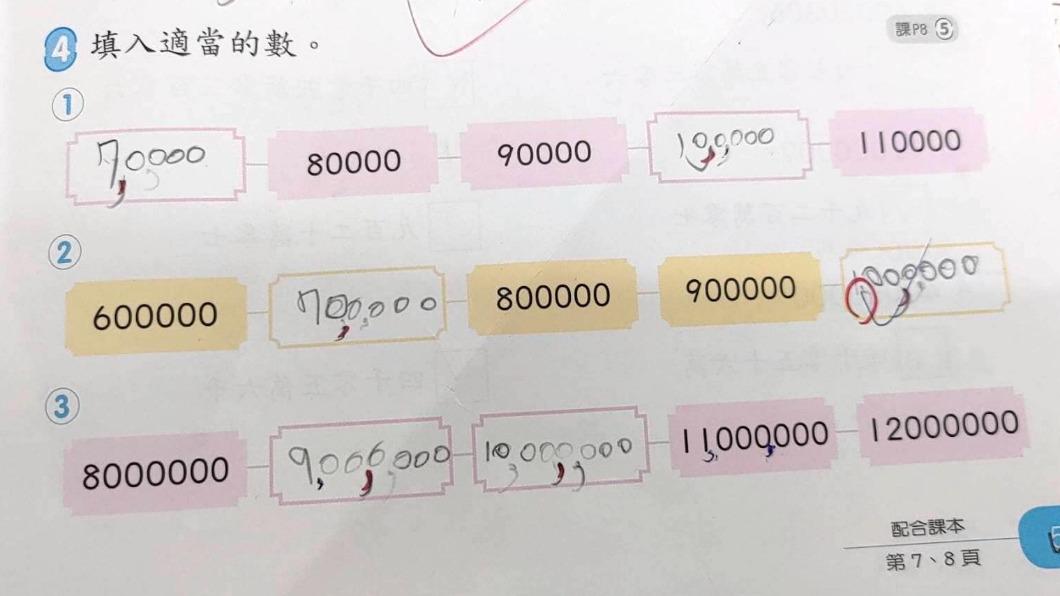 課P8 ⑤
4 填入適當的數。
①
70000 80000 90000 100,000 110000
②
600000 700,000 800000 900000 1000,000
③
8000000 9,000,000 10,000,000 11,000,000 12000000
配合課本
第7、8頁